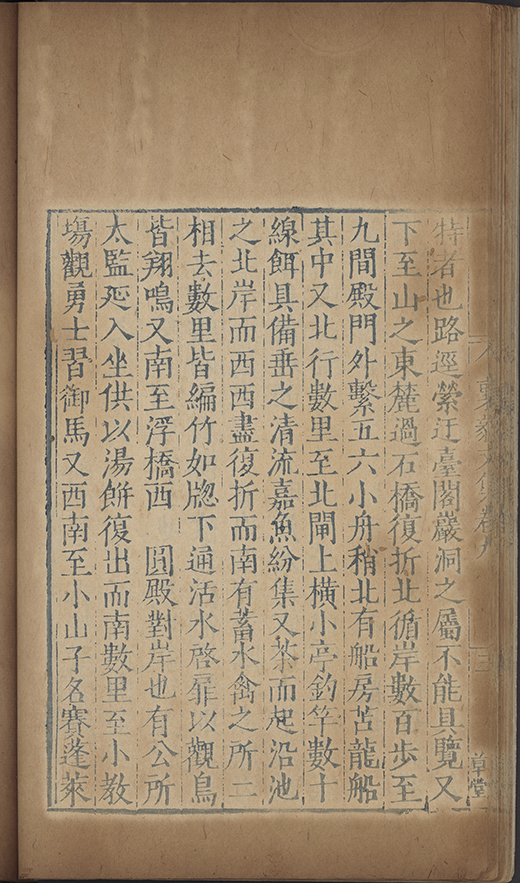 特者也路逕縈迂臺閣巖洞之屬不能具覽又
下至山之東麓過石橋復折北循岸數百步至
九間殿門外繫五六小舟稍北有船房苫龍船
其中又北行數里至北閘上橫小亭釣竿數十
線餌具備垂之清流嘉魚紛集又茶而起沿池
之北岸而西西盡復折而南有蓄水禽之所二
相去數里皆編竹如牎下通活水啓扉以觀鳥
皆翔鳴又南至浮橋西　圓殿對岸也有公所
太監延入坐供以湯餅復出而南數里至小教
塲觀勇士習御馬又西南至小山子名賽蓬萊
草堂